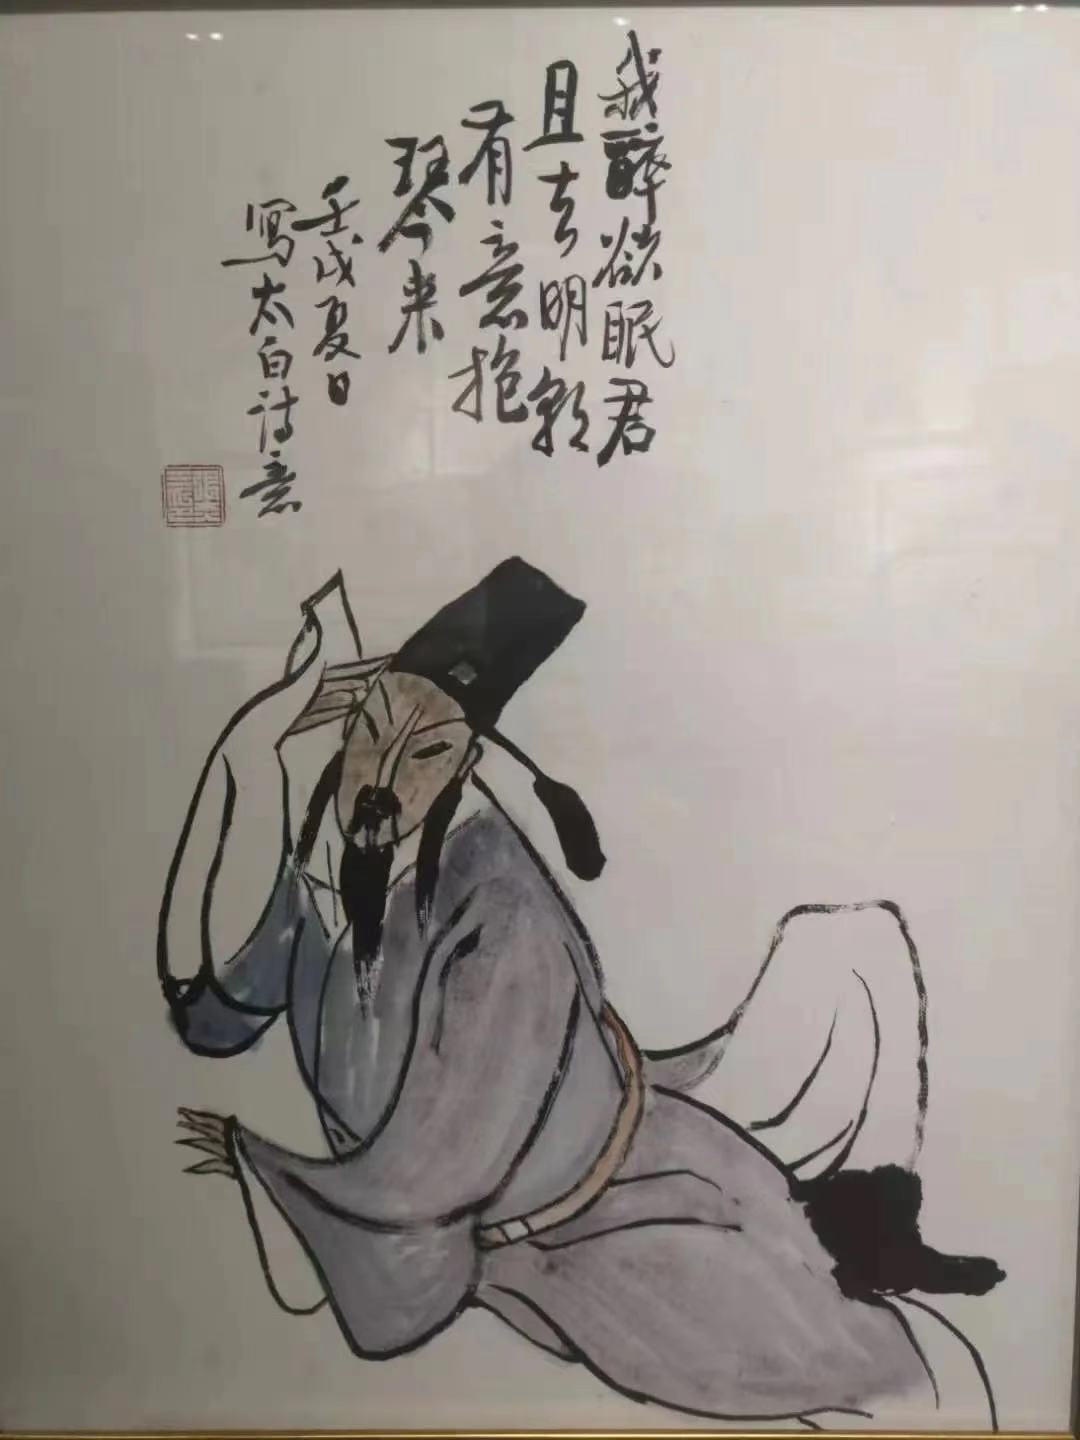 我醉欲眠君
且去明朝
有意抱
琴来
壬戌夏日
写太白诗意